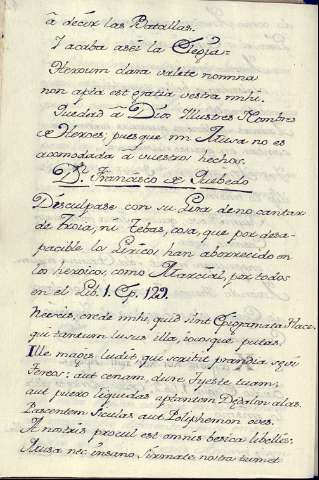 â decir las Batallas.
I acaba asei la Elegia:
Heroum clara valete nomina
non apta est gratia vestra mihi.
Quedad â Dios Illustres Hombres
& Heroes, pues que mi Musa no es
acomodada â vuestros hechos.
Dn. Francisco & Quebedo
Desculpase con su Lira de no cantar
de Troia, ni Tebas, cosa, que por desa-
pacible lo Liricos han aborrecido en
los heroicos, como Marcial, por todos
en el Lib. 1. Ep. 129.
Nescis, crede mihi, quid sint Epigramata Flace,
qui tantum lusus illa, iocosque putas.
Ille magis ludit, qui scribit prandia sævi
Tereos: aut cenam, dure Tyeste tuam,
aut puero liquidas aptantem Dedalon alas.
Pascentem Siculas aut Polyphemon oves.
A nostris procul est omnis besica libellis:
Musa nec insano Sirmate nostra tumet